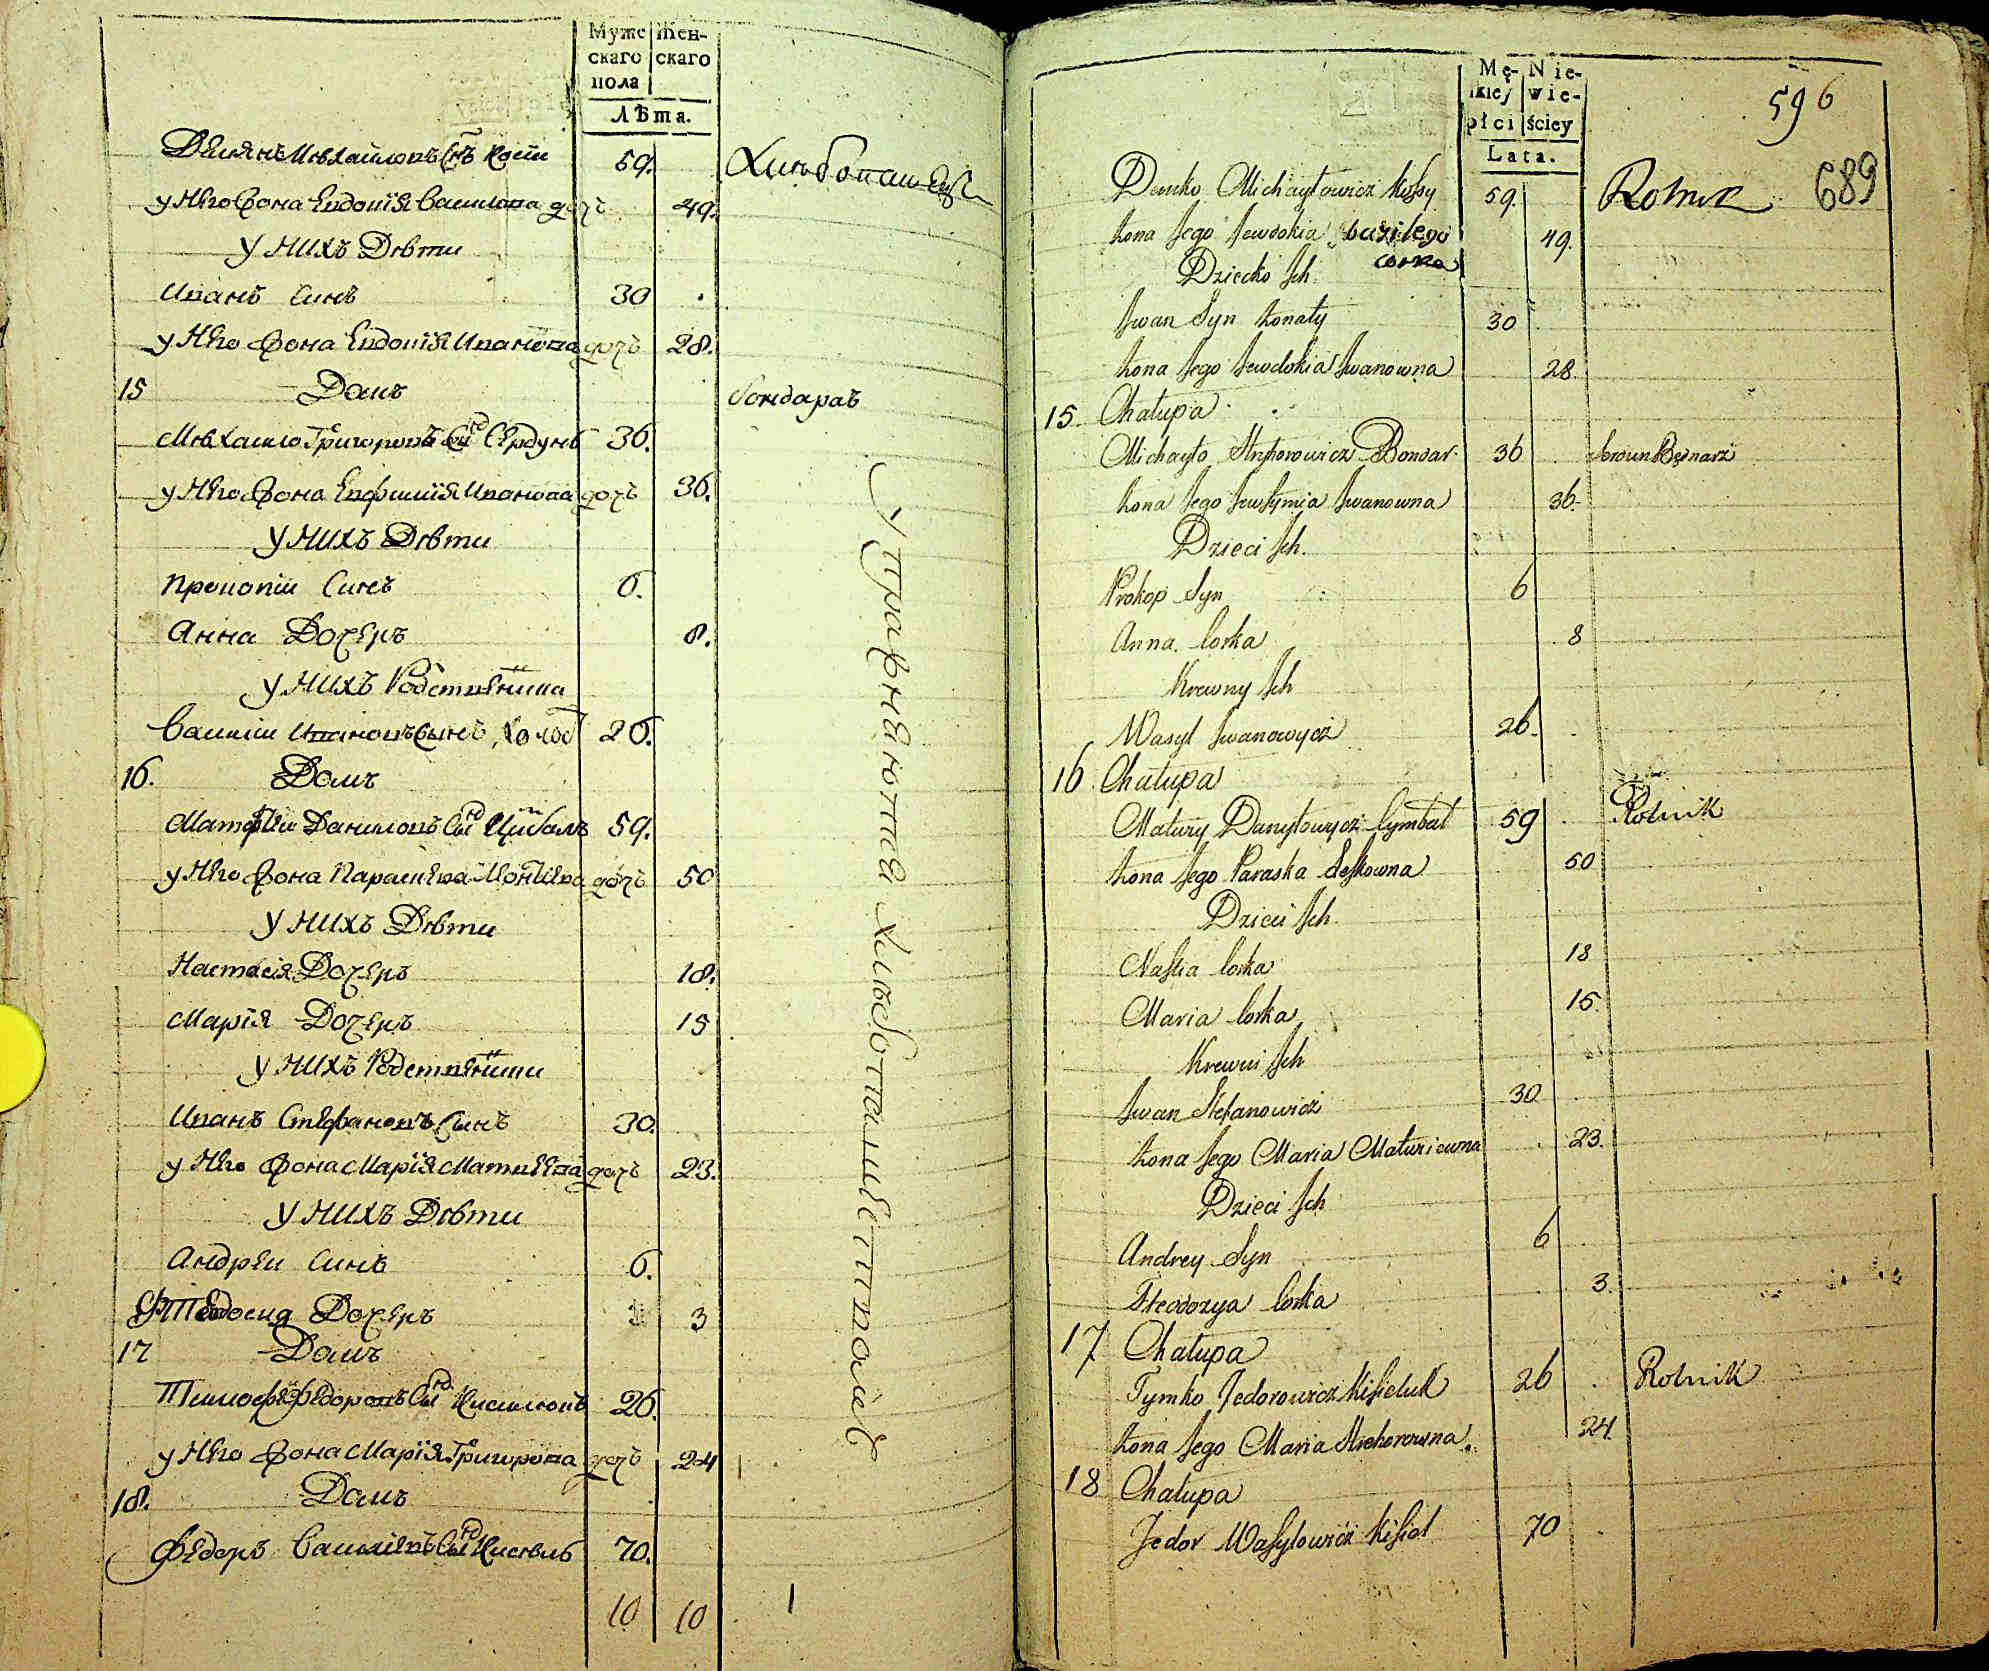 Муже
скаго
пола
Жен-
скаго
Лѣта.
Демянъ Михайловъ Снъ 59. Хлѣбопашецъ
у Него Жона Евдокія Василова дочь 49.
У Нихъ Дѣти
Иванъ Синъ 30
у Него Жона Евдокія Иванова дочь 28.
15 Домъ Бондаръ
Михаило Григоровъ 36.
у Него Жона Евфимія Иванова дочь 36.
У Нихъ Дѣти
Прокопій Синъ 6.
Анна Дочеръ 8.
У Нихъ Родственника
Василій Ивановъ Сынъ 26.
16. Домъ
Матфей Даниловъ Цимбалъ 59.
у Него Жона Параскева дочь 50
У Нихъ Дѣти
Настасія Дочеръ 18.
Марія Дочеръ 15
У Нихъ Родственники
Иванъ Стефановъ Сынъ 30.
у Него Жона Марія Матвеева дочь 23.
У Нихъ Дѣти
Андреи Синъ 6.
Дочеръ 3
17 Домъ
Тимофей Федоровъ 26.
у Него Жона Марія Григорова дочь 24
18. Домъ
Федоръ 70.
10 10 1
Упражняются хлѣбопашествомъ
Mę-
skiey
płci
Nie-
wie-
ściey
Lata.
596
689
Demko Michayłowicz Kossy 59. Rolnik
Żona Jego Jewdokia Wasilego 49.
corka
Dziecko Ich
Iwan Syn Żonaty 30
Żona Jego Jewdokia Iwanowna 28
15 Chałupa
Michayło Hryhorowicz Bondar 36 Bednarz
Żona Jego Jewfymia Iwanowna 36.
Dzieci Ich.
Prokop Syn 6
Anna Corka 8
Krewny Ich
Wasyl Iwanowycz 26.
16 Chałupa
Matwiy Danyłowycz Cymbał 59 Rolnik
Żona Jego Paraska Leskowna 50
Dzieci Ich
Nastia Corka 18
Maria Corka 15.
Krewni Ich
Iwan Stefanowicz 30
Żona Jego Maria Matwiowna 23.
Dzieci Ich
Andrey Syn 6
Fteodozya Corka 3.
17 Chałupa
Tymko Fedorowicz Kisieluk 26 Rolnik
Żona Jego Maria Hrehorowna. 24
18 Chałupa
Fedor Wasyłowicz Kisiel 70